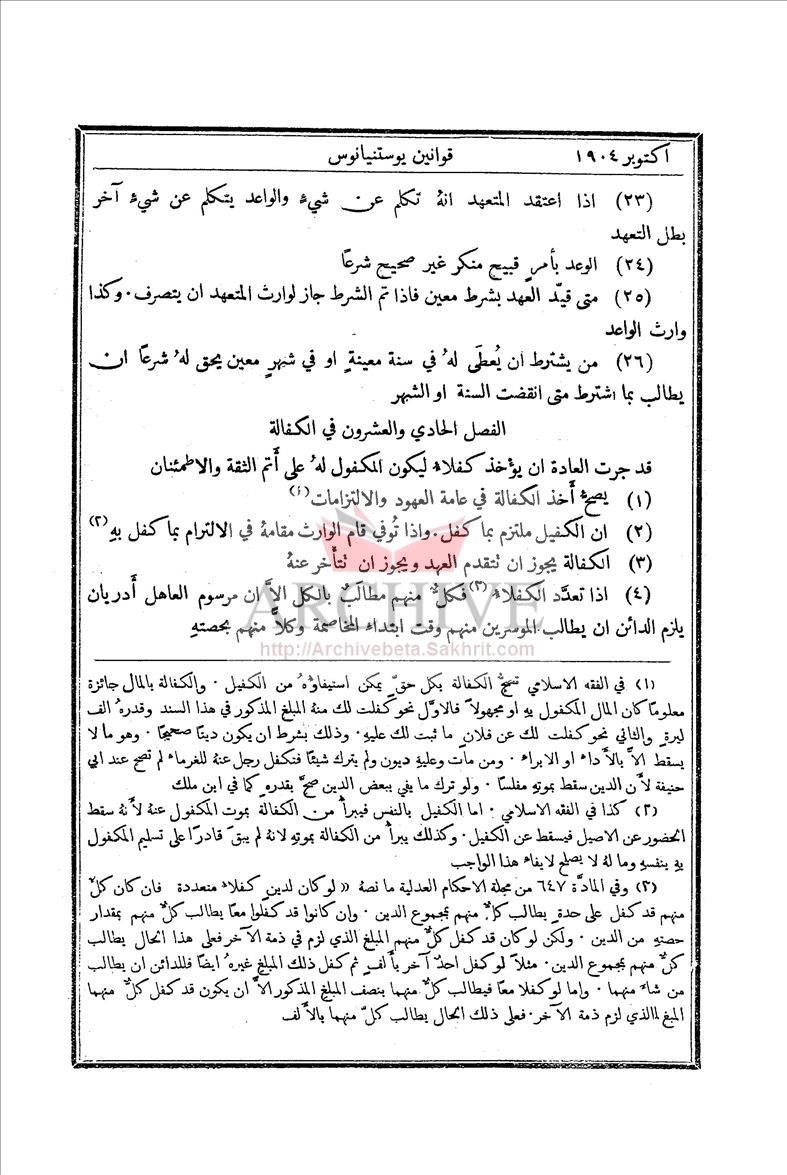 اكتوبر ١٩٠٤ قوانين يوستنيانوس
(٢٣) اذا اعتقد المتعهد انهُ تكلم عن شيءٍ والواعد يتكلم عن شيءٍ آخر
بطل التعهد
(٢٤) الوعد بأمرٍ قبيح منكر غير صحيح شرعًا
(٢٥) متى قيّد العهد بشرط معين فاذا تم الشرط جاز لوارث المتعهد ان يتصرف. وكذا
وارث الواعد
(٢٦) من يشترط ان يُعطَى لهُ في سنة معينةٍ او في شهرٍ معين يحق لهُ شرعًا ان
يطالب بما اشترط متى انقضت السنة او الشهر
الفصل الحادي والعشرون في الكفالة
قد جرت العادة ان يؤخذ كفلاءُ ليكون المكفول لهُ على أتم الثقة والاطمئنان
(١) يصحُّ أخذ الكفالة في عامة العهود والالتزامات (١)
(٢) ان الكفيل ملتزم بما كفل. واذا تُوفي قام الوارث مقامهُ في الالتزام بما كفل بهِ (٢)
(٣) الكفالة يجوز ان تتقدم العهد ويجوز ان تتأخر عنهُ
(٤) اذا تعدَّد الكفلاءُ (٣) فكلٌّ منهم مطالَبٌ بالكل الاَّ ان مرسوم العاهل أدريان
يلزم الدائن ان يطالب الموسرين منهم وقت ابتداء المخاصمة وكلاًّ منهم بحصتهِ
ARCHIVE
http://Archivebeta.Sakhrit.com
(١) في الفقه الاسلامي تصحُّ الكفالة بكل حقٍّ يمكن استيفاؤهُ من الكفيل. والكفالة بالمال جائزة
معلومًا كان المال المكفول بهِ او مجهولاً فالاوَّل نحو كفلت لك منهُ المبلغ المذكور في هذا السند وقدرهُ الف
ليرةٍ والثاني نحو كفلت لك عن فلان ما ثبت لك عليهِ. وذلك بشرط ان يكون دينًا صحيحًا. وهو ما لا
يسقط الاَّ بالأداء او الابراء. ومن مات وعليهِ ديون ولم يترك شيئًا فتكفل رجل عنهُ للغرماء لم تصح عند ابي
حنيفة لأن الدين سقط بموتهِ مفلسًا. ولو ترك ما يفي ببعض الدين صحَّ بقدره كما في ابن ملك
(٢) كذا في الفقه الاسلامي. اما الكفيل بالنفس فيبرأُ من الكفالة بموت المكفول عنهُ لأنهُ سقط
الحضور عن الاصيل فيسقط عن الكفيل. وكذلك يبرأُ من الكفالة بموتهِ لانهُ لم يبقَ قادرًا على تسليم المكفول
بهِ بنفسهِ وما لهُ لا يصلح لايفاء هذا الواجب
(٣) وفي المادَّة ٦٤٧ من مجلة الاحكام العدلية ما نصهُ « لو كان لدين كفلاءُ متعددة فان كان كلٌّ
منهم قد كفل على حدةٍ يطالب كلٌّ منهم بمجموع الدين. وان كانوا قد كفلوا معًا يطالب كلٌّ منهم بمقدار
حصتهِ من الدين. ولكن لو كان قد كفل كلٌّ منهم المبلغ الذي لزم في ذمة الآخر فعلى هذا الحال يطالب
كلٌّ منهم بمجموع الدين. مثلاً لو كفل احدٌ آخر بألفٍ ثم كفل ذلك المبلغ غيرهُ ايضًا فللدائن ان يطالب
من شاءَ منهما. واما لو كفلا معًا فيطالب كلٌّ منهما بنصف المبلغ المذكور الاَّ ان يكون قد كفل كلٌّ منهما
المبلغ الذي لزم ذمة الآخر. فعلى ذلك الحال يطالب كلٌّ منهما بالألف